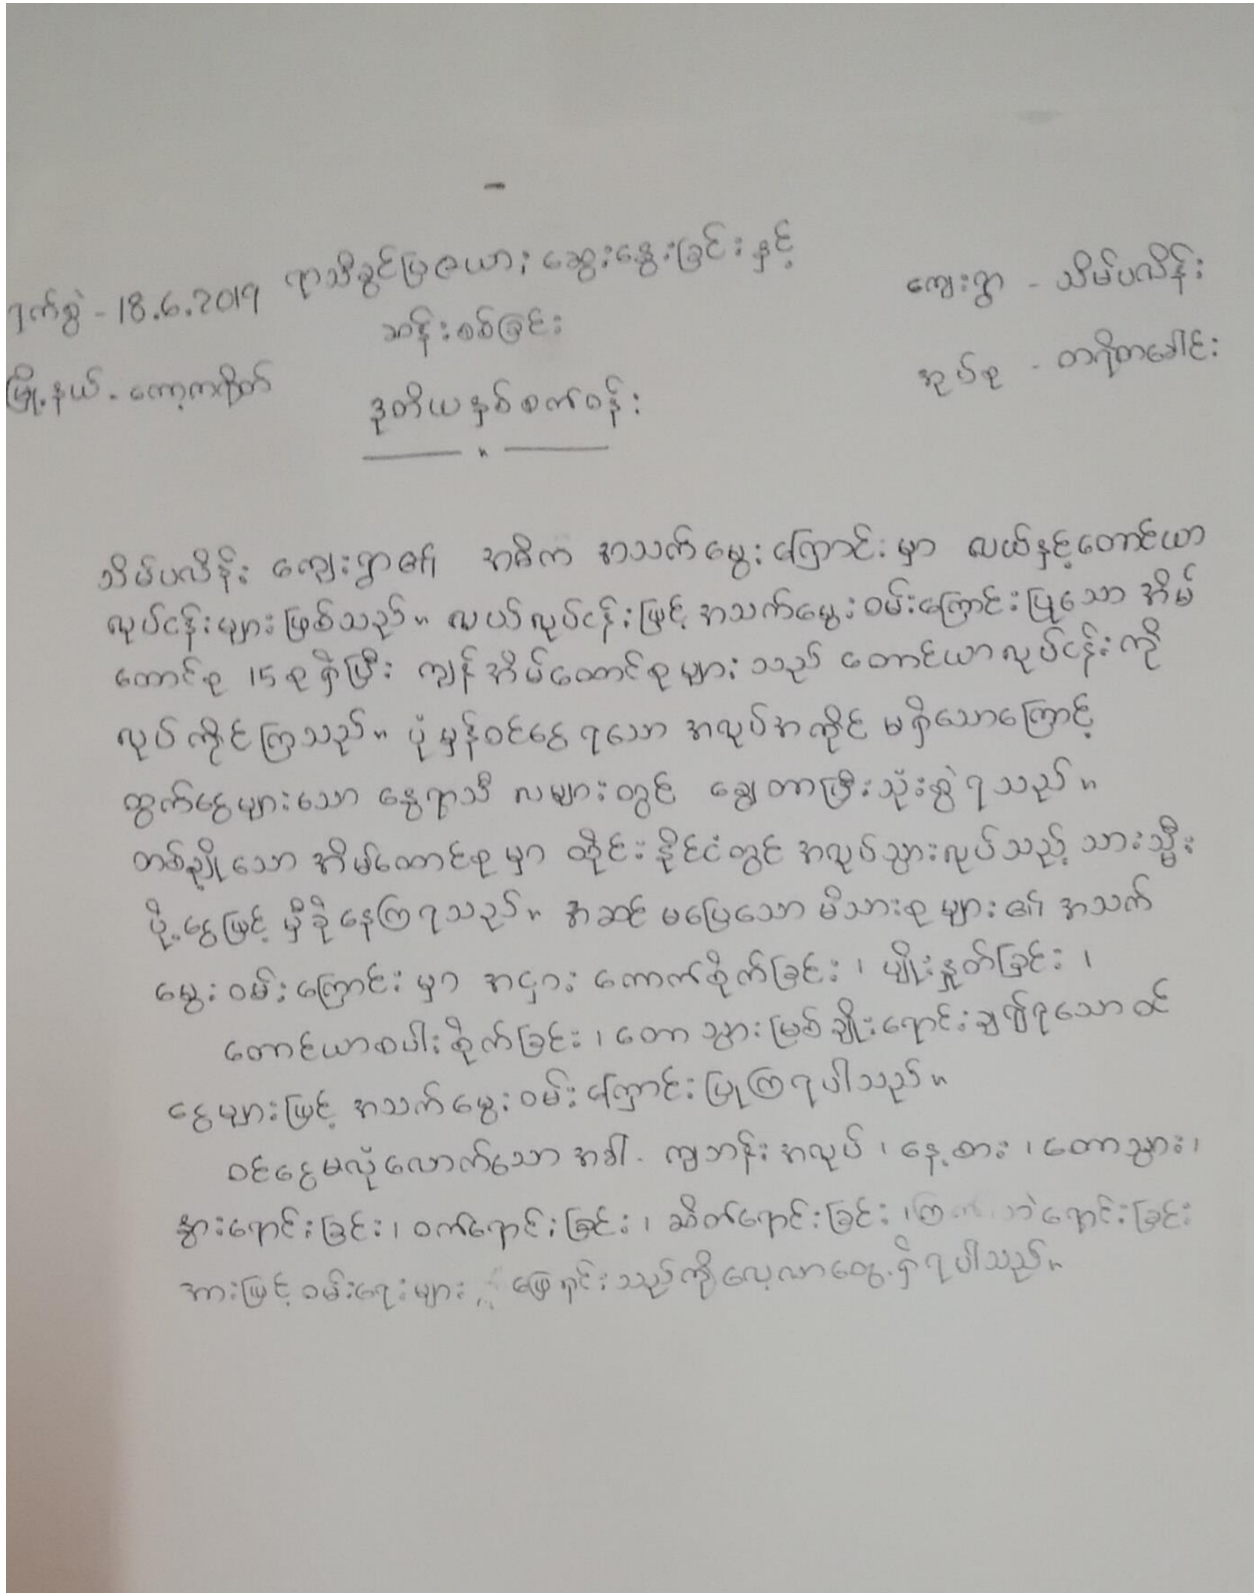 ရက်စွဲ - 18.6.2019 ရာသီခွင်ပြဇယား ဆွေးနွေးခြင်းနှင့် ကျေးရွာ - သိမ်ပလိန်း
ဆန်းစစ်ခြင်း
မြို့နယ် - ကော့ကရိတ် ဒုတိယနှစ်စက်ဝန်း အုပ်စု - တရိတခေါင်း
သိမ်ပလိန်း ကျေးရွာ၏ အဓိက အသက်မွေးကြောင်းမှာ လယ်နှင့်တောင်ယာ
လုပ်ငန်းများဖြစ်သည်။ လယ်လုပ်ငန်းဖြင့် အသက်မွေးဝမ်းကြောင်းပြုသော အိမ်
ထောင်စု 15 စုရှိပြီး ကျန်အိမ်ထောင်စုများသည် တောင်ယာလုပ်ငန်းကို
လုပ်ကိုင်ကြသည်။ ပုံမှန်ဝင်ငွေရသော အလုပ်အကိုင် မရှိသောကြောင့်
ထွက်ငွေများသော နွေရာသီ လများတွင် ချွေတာပြီးသုံးစွဲရသည်။
တစ်ချို့သော အိမ်ထောင်စုမှာ ထိုင်းနိုင်ငံတွင် အလုပ်သွားလုပ်သည့် သားသ္မီး
ပို့ငွေဖြင့် မှီခိုနေကြရသည်။ အဆင်မပြေသော မိသားစုများ၏ အသက်
မွေးဝမ်းကြောင်းမှာ အငှားကောက်စိုက်ခြင်း၊ ပျိုးနှုတ်ခြင်း၊
တောင်ယာစပါးစိုက်ခြင်း၊ တောသွားမြစ်ချိုးရောင်းချ၍ရသောဝင်
ငွေများဖြင့် အသက်မွေးဝမ်းကြောင်းပြုကြရပါသည်။
ဝင်ငွေမလုံလောက်သောအခါ ကျဘန်းအလုပ်၊ နေ့စား၊ တောသွား၊
နွားရောင်းခြင်း၊ ဝက်ရောင်းခြင်း၊ ဆိတ်ရောင်းခြင်း၊ ကြက်၊ ဘဲရောင်းခြင်း
အားဖြင့် ဝမ်းရေးများ ဖြေရှင်းသည်ကိုလေ့လာတွေ့ရှိရပါသည်။